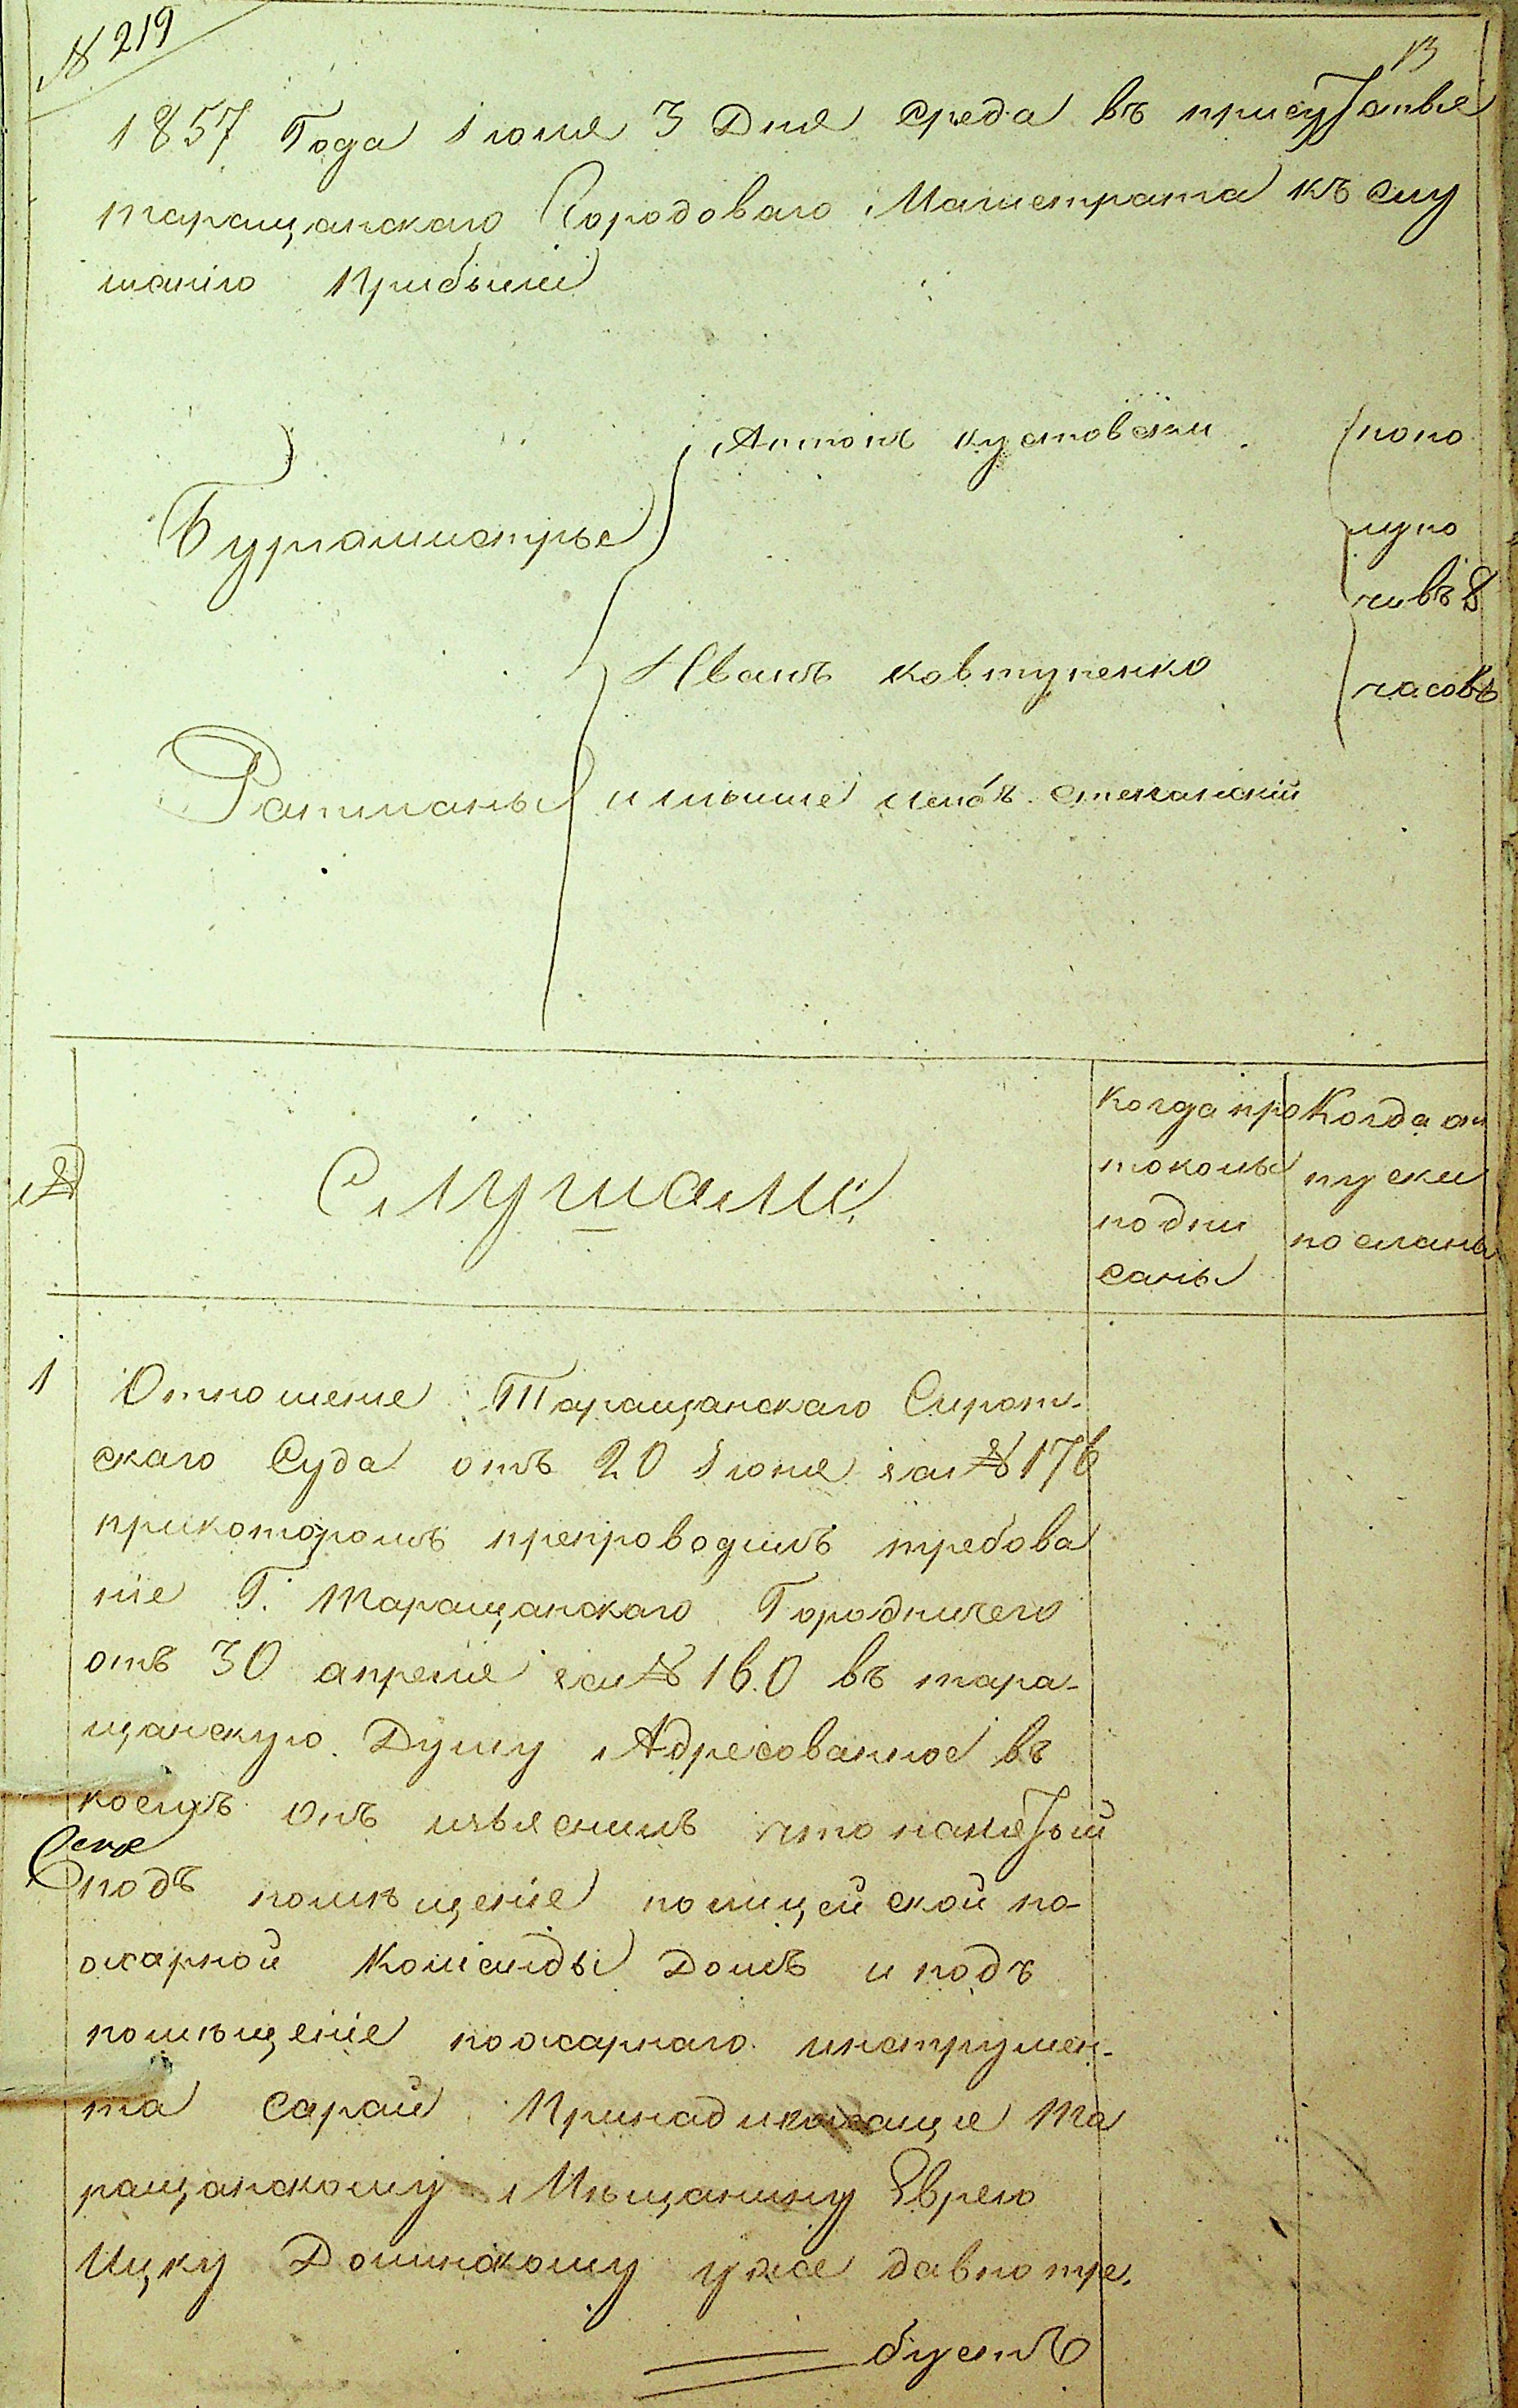 № 219
13
1857 Года Іюня 3 Дня Среда въ присутствіе
таращанскаго Городоваго Магистрата къ слу
шанію Прибыли
Антонъ кустовскій
попо
Бургомистры
лудно
чивъ 8
Иванъ ковтуненко
часовъ
Ратманы
№
Слушали:
Когда про
токолы
подпи
саны
Когда от
пуски
посланы
1
Отношеніе Таращанскаго Сирот-
скаго Суда отъ 20 Іюня за № 176
прикоторомъ препроводилъ требова
ніе Г. Таращанскаго Городничего
отъ 30 апреля за № 160 въ тара-
щанскую Думу Адресованное въ
коемъ онъ изъяснилъ что нанятый
подъ помѣщеніе полицейской по-
жарной Команды Домъ и подъ
помѣщеніе пожарнаго инструмен-
та Сарай Принадлежащие Та
ращанскому Мѣщанину Еврею
Ицку Долинскому уже давно тре-
буетъ